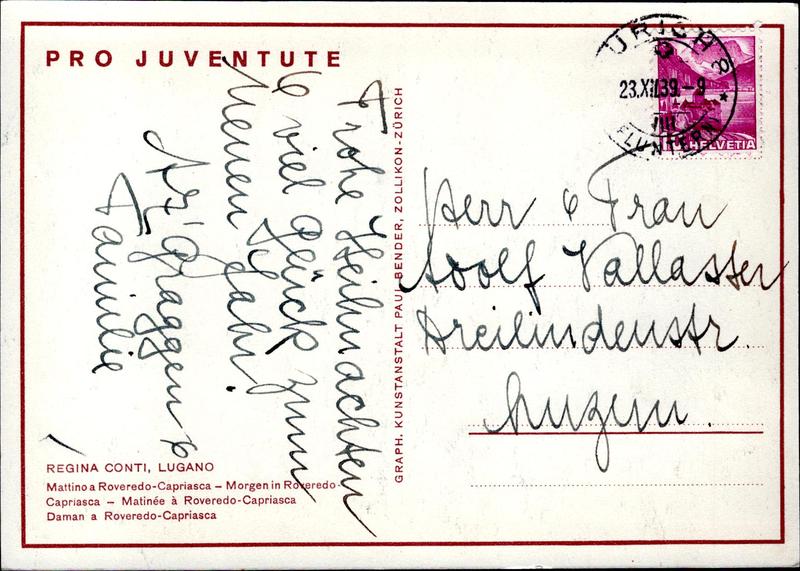 PRO JUVENTUTE
Frohe Weihnachten
& viel Glück zum
Neuen Jahr!
Familie
REGINA CONTI, LUGANO
Mattino a Roveredo-Capriasca – Morgen in Roveredo-
Capriasca – Matinée à Roveredo-Capriasca
Daman a Roveredo-Capriasca
GRAPH. KUNSTANSTALT PAUL BENDER, ZOLLIKON-ZÜRICH
ZÜRICH 8
23.XII.39.-9
VIII
FLUNTERN
HELVETIA
Herr & Frau
Adolf Vallaster
Dreilindenstr.
Luzern.